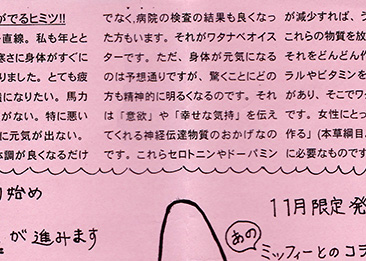 がでるヒミツ!!
直線。私も年とと
寒さに身体がすぐに
りました。とても疲
強になりたい。馬力
がない。特に悪い
に元気が出ない。
体調が良くなるだけ
でなく、病院の検査の結果も良くなっ
た方もいます。それがワタナベオイス
ターです。ただ、身体が元気になる
のは予想通りですが、驚くことにどの
方も精神的に明るくなるのです。それ
は「意欲」や「幸せな気持」を伝え
てくれる神経伝達物質のおかげなの
です。これらセロトニンやドーパミン
が減少すれば、う
これらの物質を放
それをどんどん作
ラルやビタミンを
があり、そこでワタ
です。女性にとっ
作る」(本草綱目
に必要なものです
り始め
が進みます
11月限定発
あの
ミッフィーとのコラ